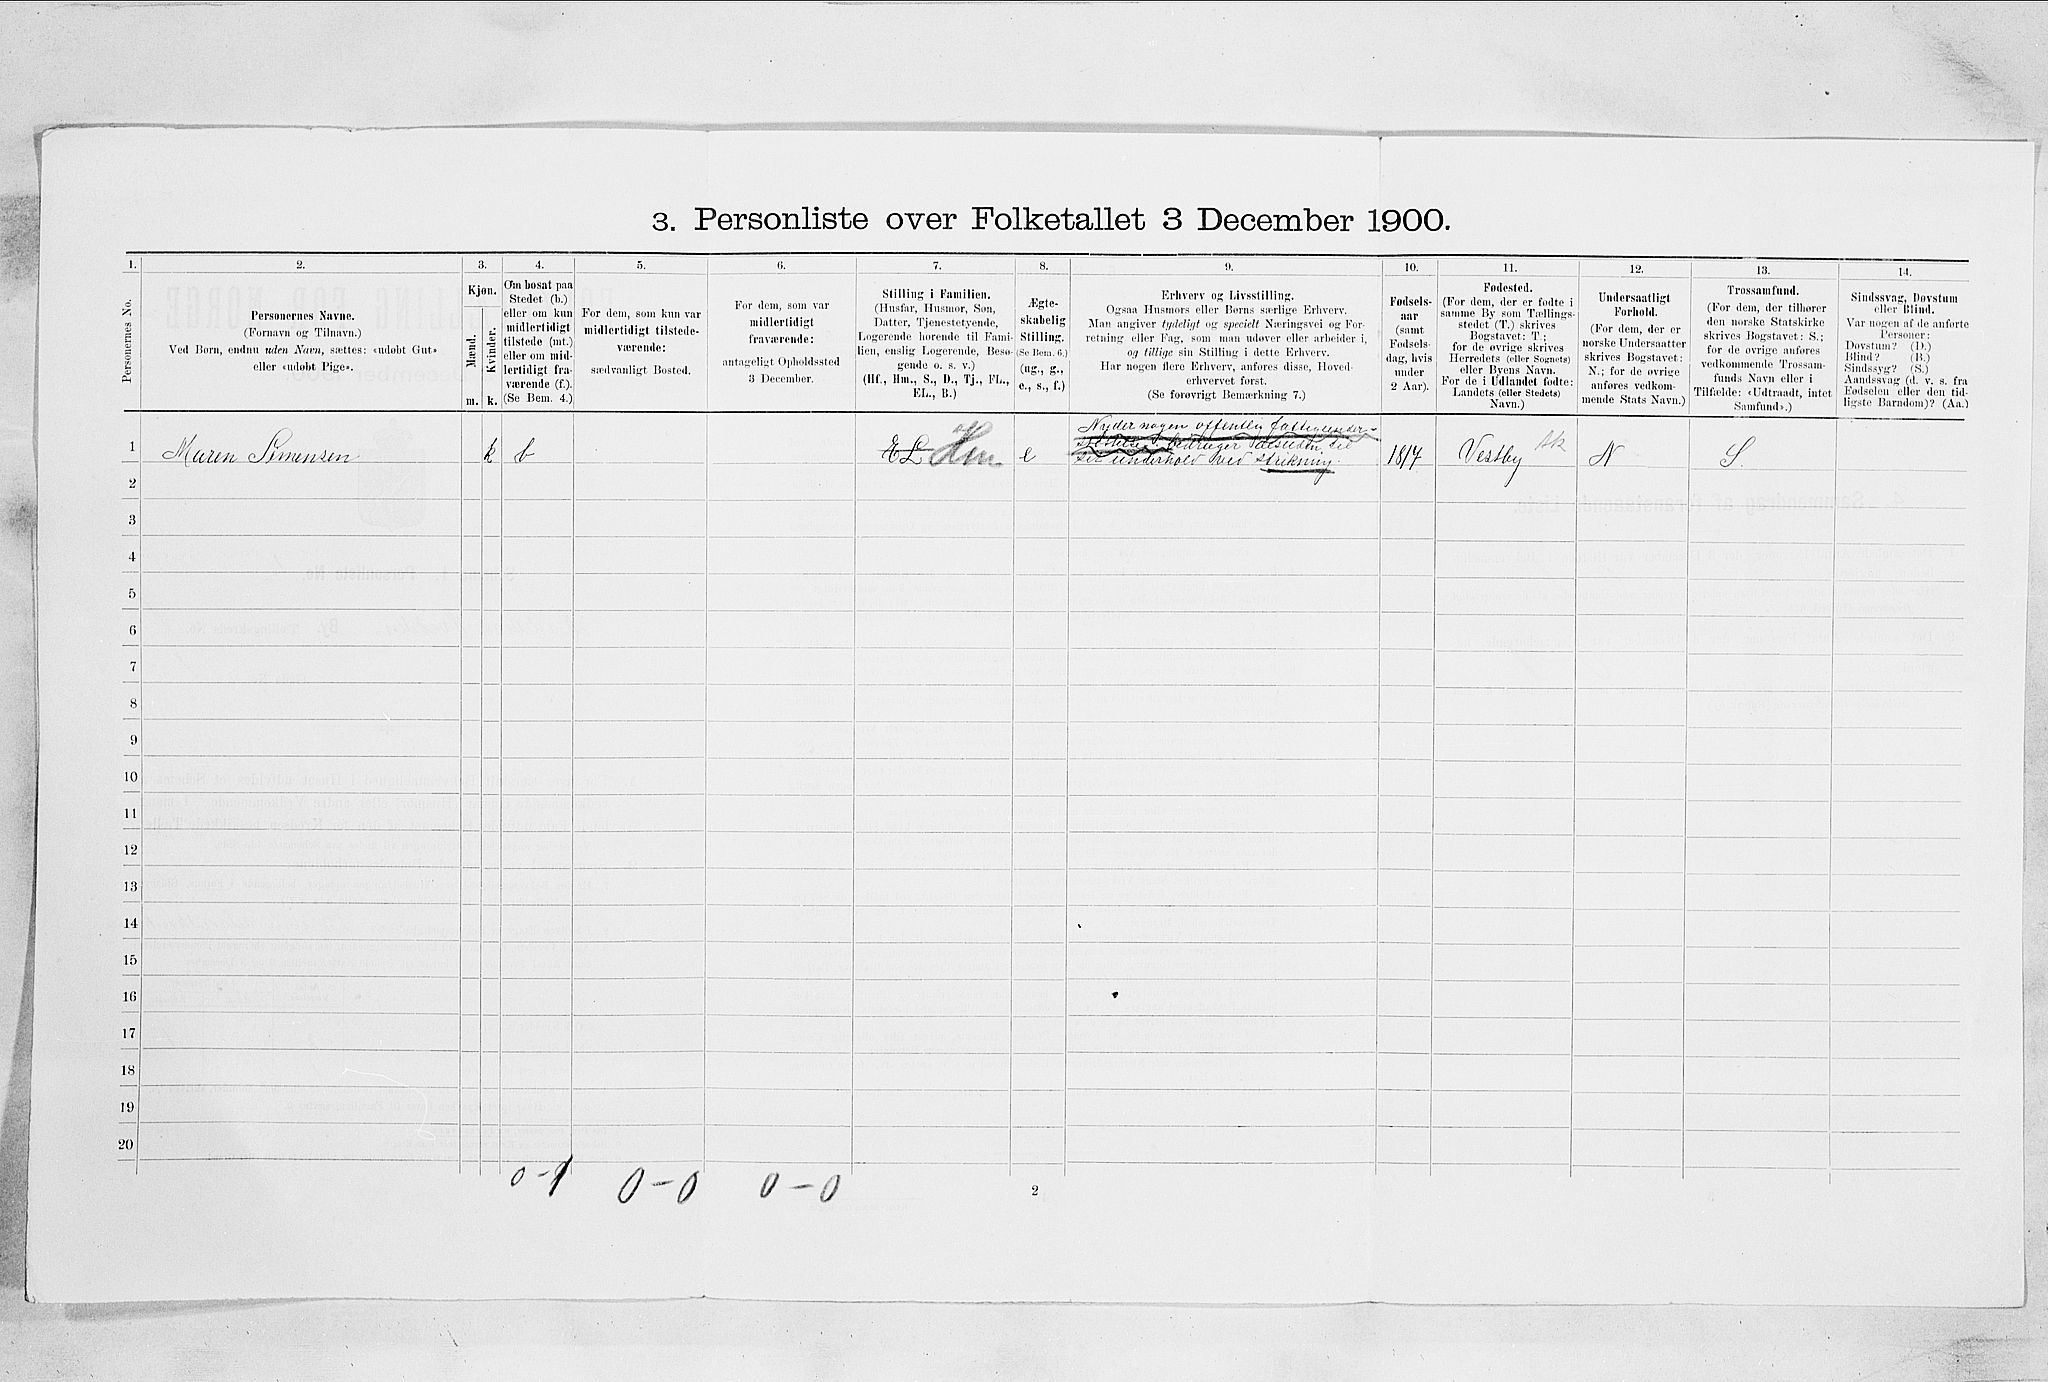 3. Personliste over Folketallet 3 December 1900.
1. 2. 3. 4. 5. 6. 7. 8. 9. 10. 11. 12. 13. 14.
Personernes No.
Personernes Navne.
(Fornavn og Tilnavn.)
Ved Børn, endnu uden Navn, sættes: «udøbt Gut»
eller «udøbt Pige».
Kjøn.
Mænd.
Kvinder.
m. k.
Om bosat paa
Stedet (b.)
eller om kun
midlertidigt
tilstede (mt.)
eller om mid-
lertidigt fra-
værende (f.)
(Se Bem. 4.)
For dem, som kun var
midlertidigt tilstede-
værende:
sædvanligt Bosted.
For dem, som var
midlertidigt
fraværende:
antageligt Opholdssted
3 December.
Stilling i Familien.
(Husfar, Husmor, Søn,
Datter, Tjenestetyende,
Logerende hørende til Fami-
lien, enslig Logerende, Besø-
gende o. s. v.)
(Hf., Hm., S., D., Tj., FL.,
EL., B.)
Ægte-
skabelig
Stilling.
(Se Bem. 6.)
(ug., g.,
e., s., f.)
Erhverv og Livsstilling.
Ogsaa Husmors eller Børns særlige Erhverv.
Man angiver tydeligt og specielt Næringsvei og For-
retning eller Fag, som man udøver eller arbeider i,
og tillige sin Stilling i dette Erhverv.
Har nogen flere Erhverv, anføres disse, Hoved-
erhvervet først.
(Se forøvrigt Bemærkning 7.)
Fødsels-
aar
(samt
Fødsels-
dag, hvis
under
2 Aar).
Fødested.
(For dem, der er fødte i
samme By som Tællings-
stedet (T.) skrives
Bogstavet: T.;
for de øvrige skrives
Herredets (eller Sognets)
eller Byens Navn.
For de i Udlandet fødte:
Landets (eller Stedets)
Navn.)
Undersaatligt
Forhold.
(For dem, der er
norske Undersaatter
skrives Bogstavet:
N.; for de øvrige
anføres vedkom-
mende Stats Navn.)
Trossamfund.
(For dem, der tilhører
den norske Statskirke
skrives Bogstavet: S.;
for de øvrige anføres
vedkommende Trossam-
funds Navn eller i
Tilfælde: «Udtraadt, intet
Samfund».)
Sindssvag, Døvstum
eller Blind.
Var nogen af de anførte
Personer:
Døvstum? (D.)
Blind? (B.)
Sindssyg? (S.)
Aandssvag (d. v. s. fra
Fødselen eller den tid-
ligste Barndom)? (Aa.)
Nyder nogen offentlig fattigunder-
1 Maren Sørensen k b EL Hm e 1817 Vestby Ak N S.
underhold ved strikning
2
3
4
5
6
7
8
9
10
11
12
13
14
15
16
17
18
19
20
0-1 0-0 0-0
2